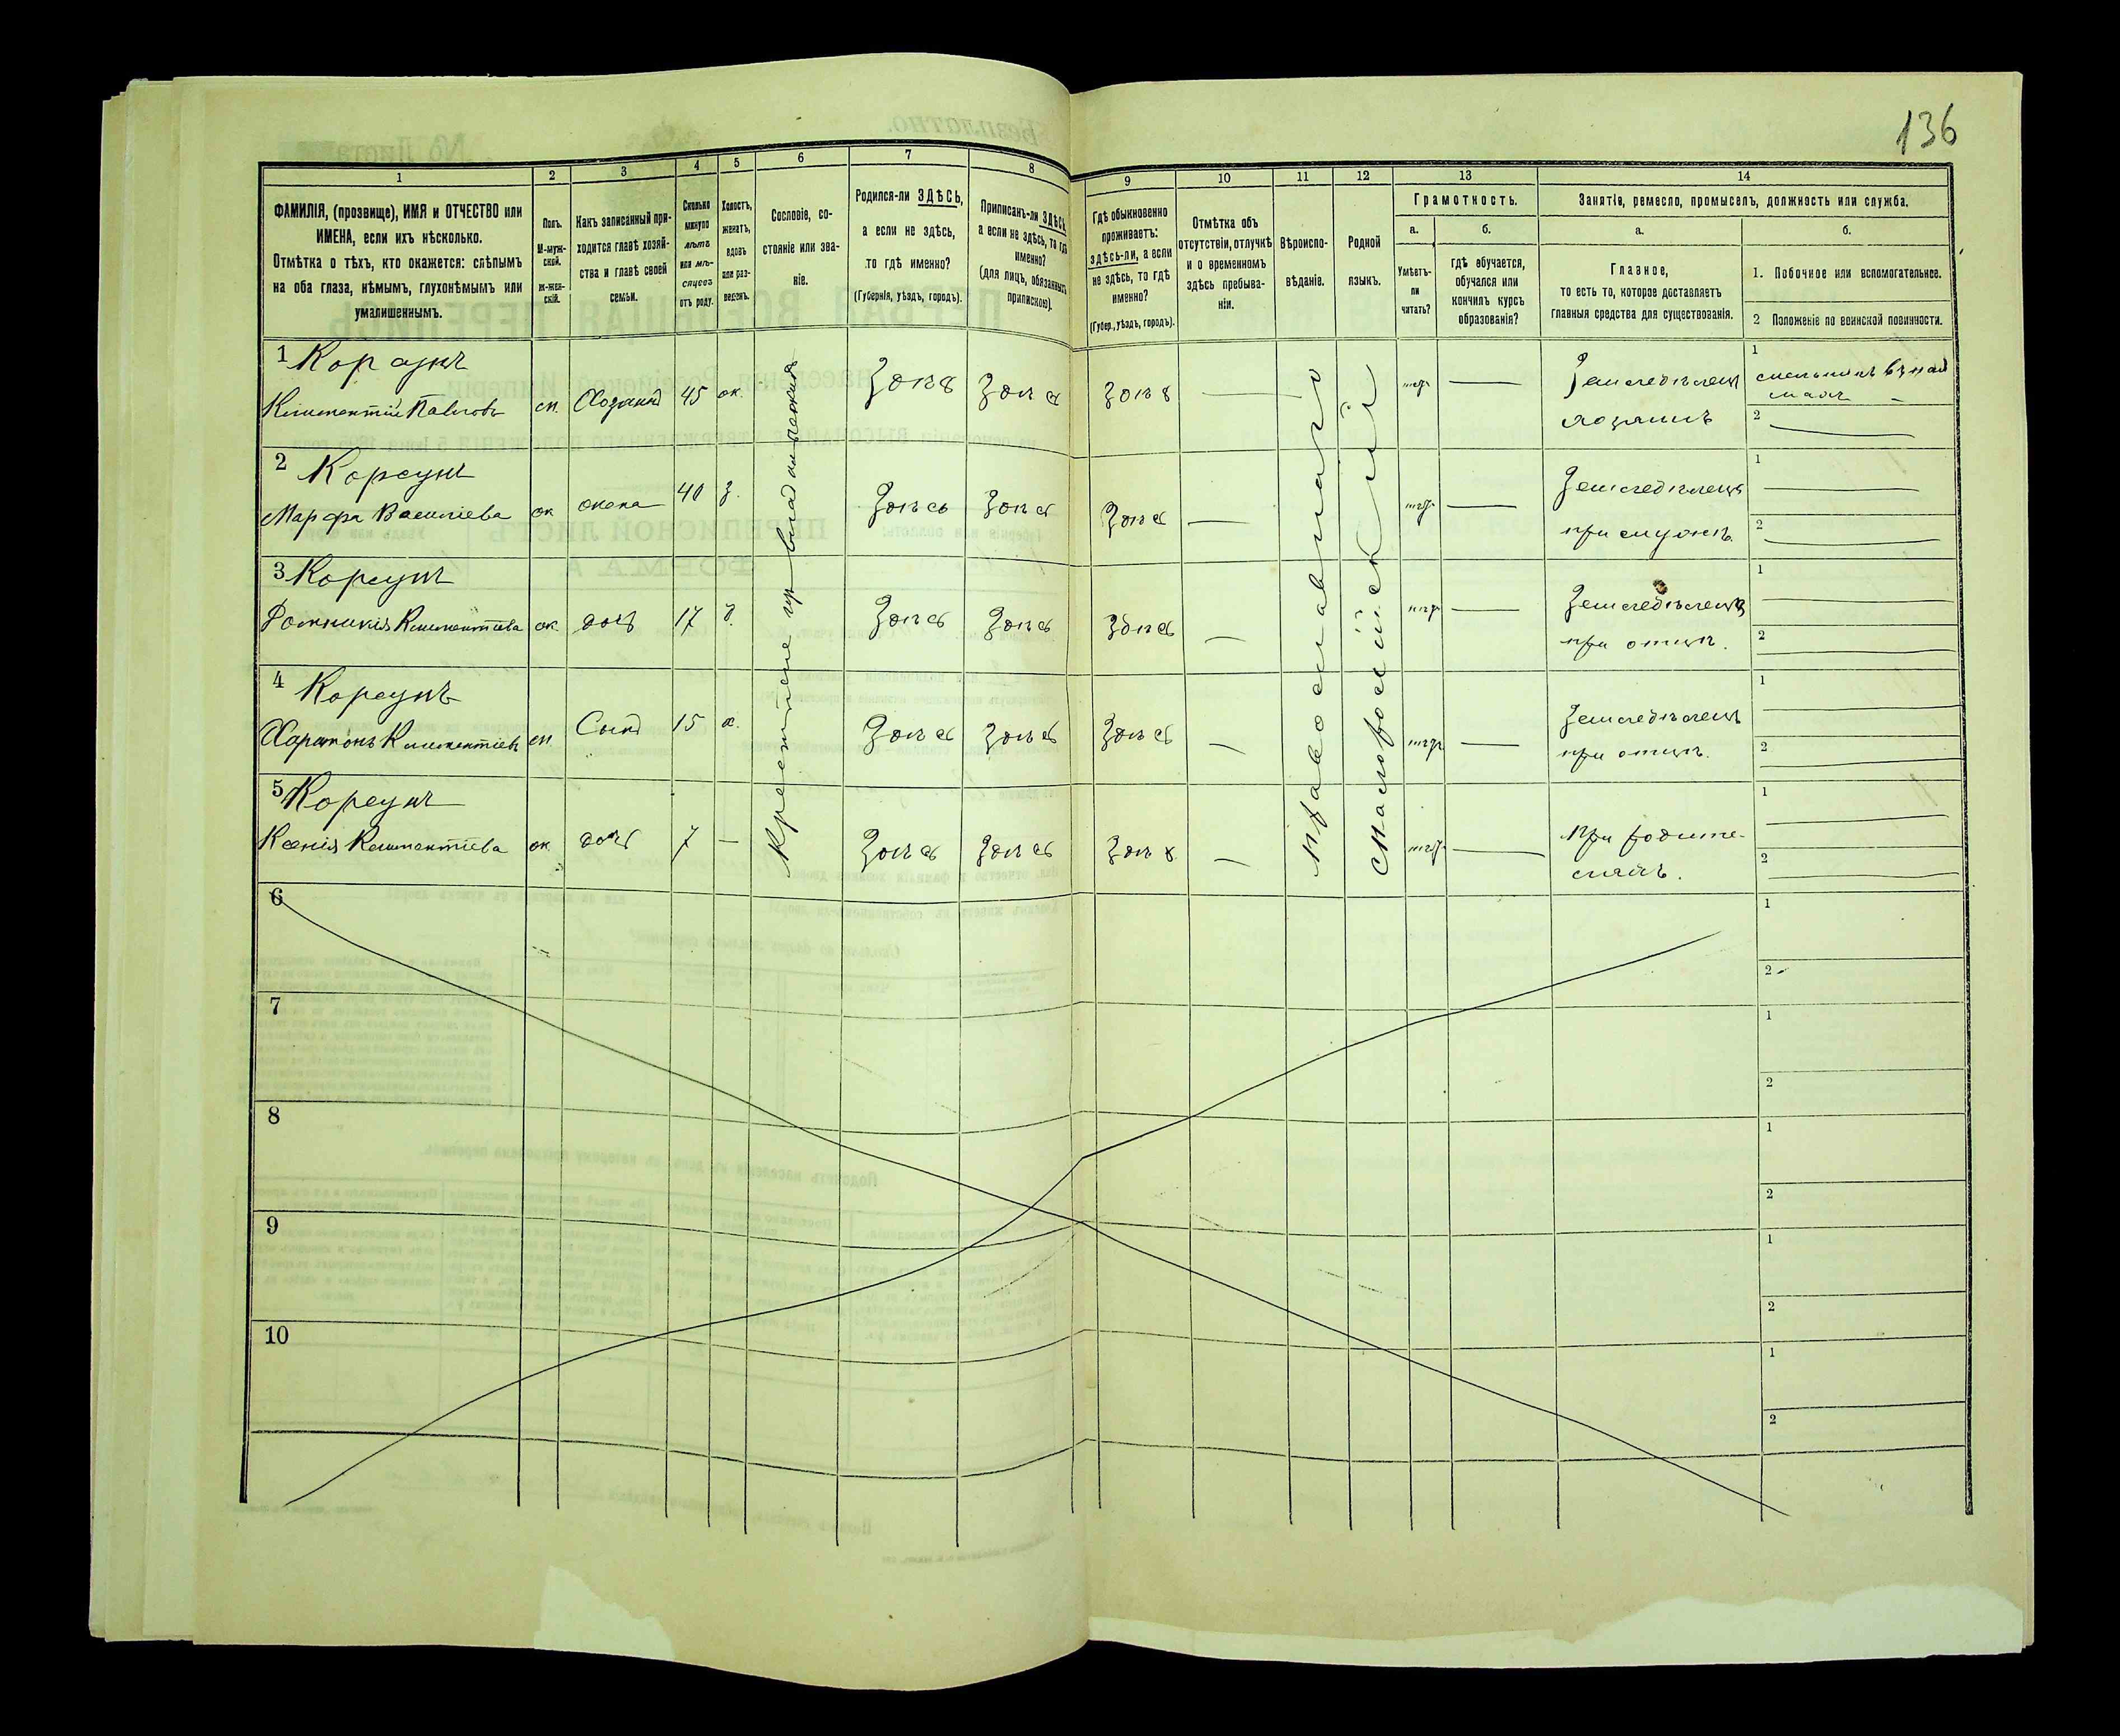 136
1
2
3
4
5
6
7
8
9
10
11
12
13
14
ФАМИЛІЯ, (прозвище), ИМЯ и ОТЧЕСТВО или
ИМЕНА, если ихъ нѣсколько.
Отмѣтка о тѣхъ, кто окажется: слѣпымъ
на оба глаза, нѣмымъ, глухонѣмымъ или
умалишеннымъ.
Полъ.
М-муж-
ской.
Ж-жен-
скій.
Какъ записанный при-
ходится главѣ хозяй-
ства и главѣ своей
семьи.
Сколько
минуло
лѣтъ
или мѣ-
сяцевъ
отъ роду.
Холостъ,
женатъ,
вдовъ
или раз-
веденъ.
Сословіе, со-
стояніе или зва-
ніе.
Родился-ли ЗДѢСЬ,
а если не здѣсь,
то гдѣ именно?
(Губернія, уѣздъ, городъ).
Приписанъ-ли ЗДѢСЬ
а если не здѣсь, то гдѣ
именно?
(для лицъ, обязанныхъ
припискою).
Гдѣ обыкновенно
проживаетъ:
здѣсь-ли, а если
не здѣсь, то гдѣ
именно?
(Губер., уѣздъ, городъ).
Отмѣтка объ
отсутствіи, отлучкѣ
и о временномъ
здѣсь пребыва-
ніи.
Вѣроиспо-
вѣданіе.
Родной
языкъ.
Грамотность.
а.
Умѣетъ-
ли
читать?
б.
гдѣ обучается,
обучался или
кончилъ курсъ
образованія?
Занятіе, ремесло, промыселъ, должность или служба.
а.
Главное,
то есть то, которое доставляетъ
главныя средства для существованія.
б.
1. Побочное или вспомогательное.
2 Положеніе по воинской повинности.
1 Корсунъ
Климентій Павловъ м. Хозяинъ 45 ж. Здѣсь Здѣсь Здѣсь — нѣтъ — Земледѣлецъ
хозяинъ
1
2
2 Корсунъ
Марфа Василіева ж жена 40 з. Здѣсь Здѣсь Здѣсь — нѣтъ — Земледѣлецъ
при мужѣ.
1
2
3 Корсунъ
Домникія Климентіева ж. дочь 17 д. Здѣсь Здѣсь Здѣсь — нѣтъ — Земледѣлецъ
при отцѣ.
1
2
4 Корсунъ
Харитонъ Климентіевъ м. Сынъ 15 х. Здѣсь Здѣсь Здѣсь — нѣтъ — Земледѣлецъ
при отцѣ.
1
2
5 Корсунъ
Ксенія Климентіева ж. дочь 7 — Здѣсь Здѣсь Здѣсь — нѣтъ — При родите-
ляхъ.
1
2
Православнаго
Малороссійскій
6
1
2
7
1
2
8
1
2
9
1
2
10
1
2